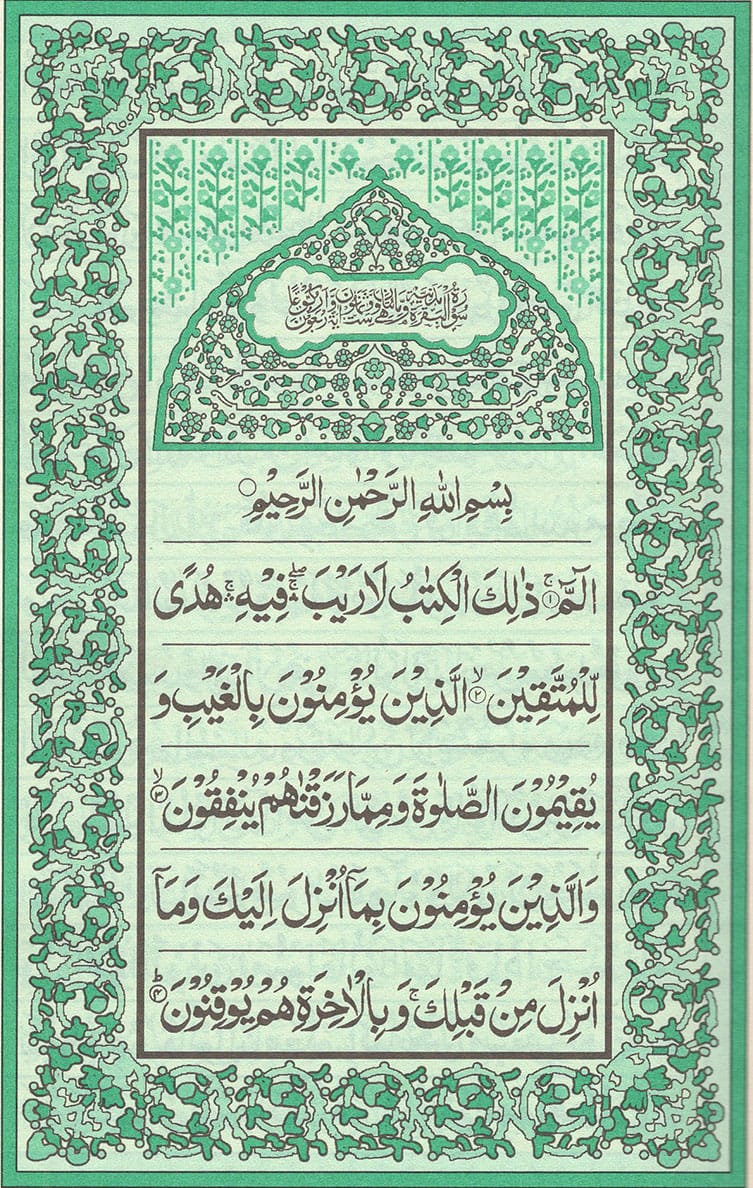 سُوْرَةُ الْبَقَرَةِ مَدَنِيَّةٌ وَهِيَ مِائَتَانِ وَسِتٌّ وَّثَمَانُوْنَ اٰيَةً وَّاَرْبَعُوْنَ رُكُوْعًا
بِسْمِ اللهِ الرَّحْمٰنِ الرَّحِيْمِ ○
الٓمّٓ ۚ﴿۱﴾ ذٰلِكَ الْكِتٰبُ لَا رَيْبَ ۛۖ فِيْهِ ۛۚ هُدًى
لِّلْمُتَّقِيْنَ ۙ﴿۲﴾ الَّذِيْنَ يُؤْمِنُوْنَ بِالْغَيْبِ وَ
يُقِيْمُوْنَ الصَّلٰوةَ وَ مِمَّا رَزَقْنٰهُمْ يُنْفِقُوْنَ ۙ﴿۳﴾
وَالَّذِيْنَ يُؤْمِنُوْنَ بِمَآ اُنْزِلَ اِلَيْكَ وَمَآ
اُنْزِلَ مِنْ قَبْلِكَ ۚ وَ بِالْاٰخِرَةِ هُمْ يُوْقِنُوْنَ ؕ﴿۴﴾